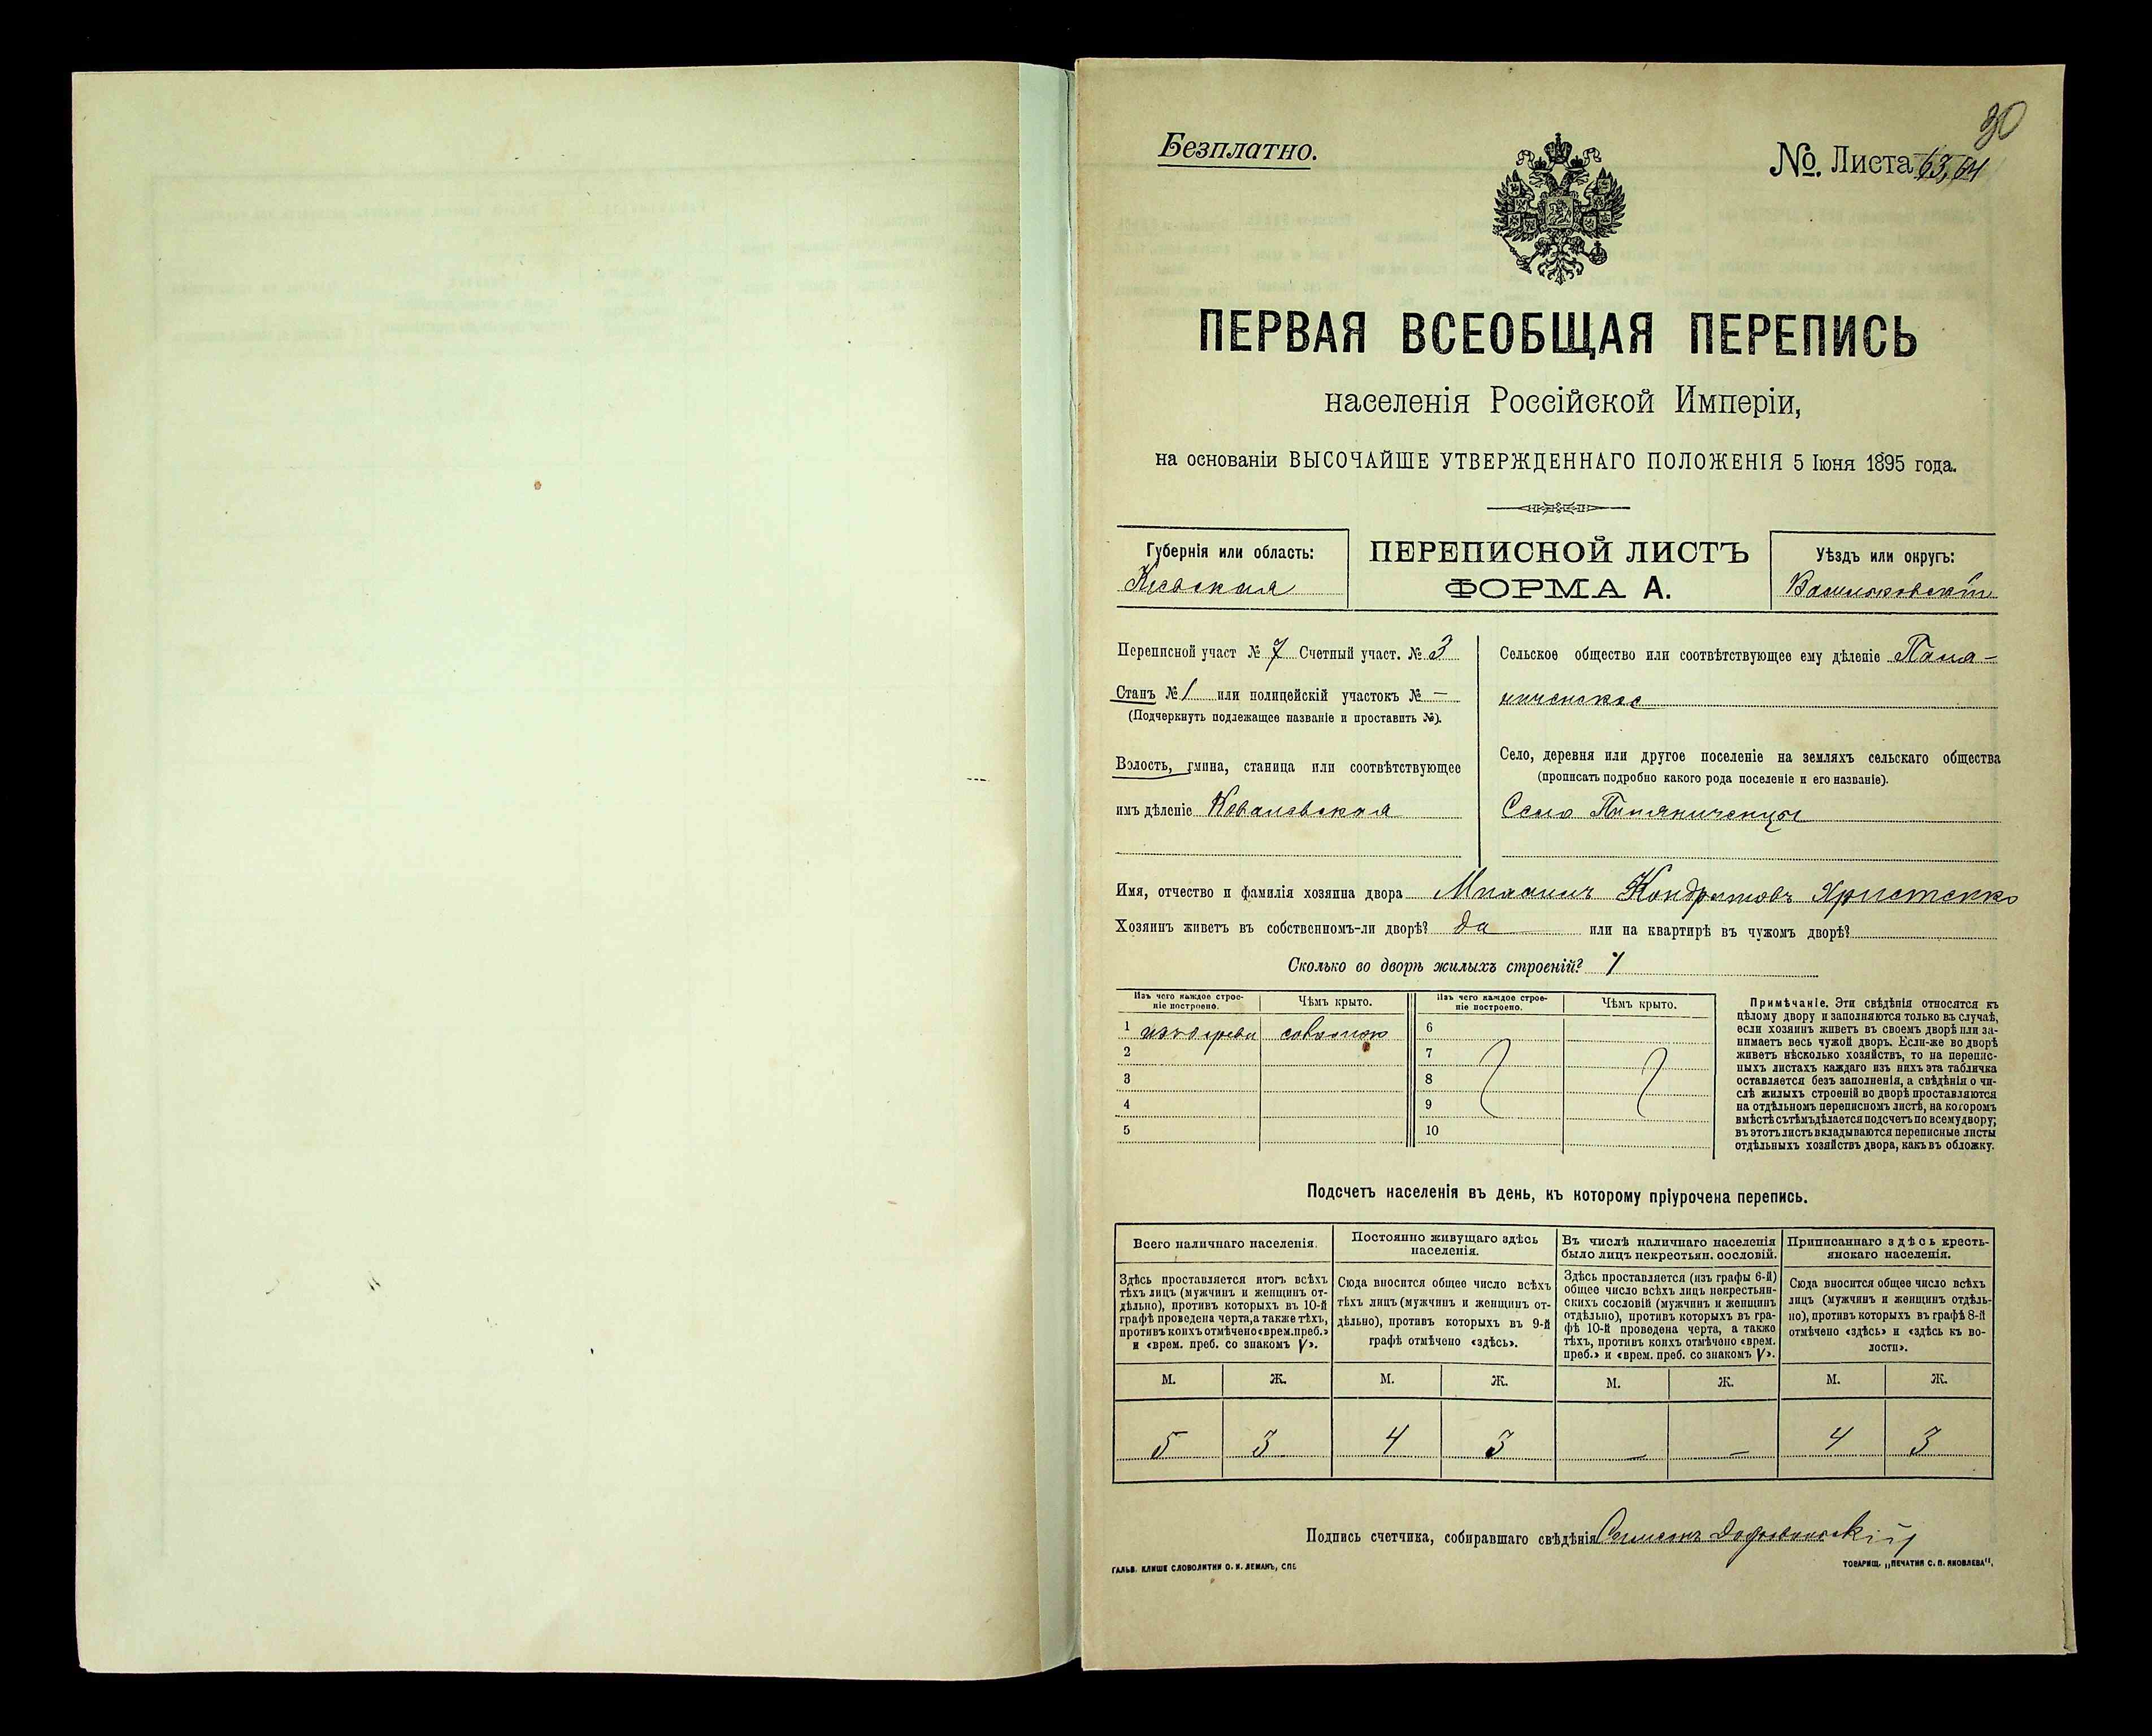 30
Безплатно.
№. Листа 63, 64
ПЕРВАЯ ВСЕОБЩАЯ ПЕРЕПИСЬ
населенія Россійской Имперіи,
на основаніи ВЫСОЧАЙШЕ УТВЕРЖДЕННАГО ПОЛОЖЕНІЯ 5 Іюня 1895 года.
Губернія или область:
Кіевская
ПЕРЕПИСНОЙ ЛИСТЪ
ФОРМА А.
Уѣздъ или округъ:
Васильковскій
Переписной участ № 7 Счетный участ. № 3
Станъ № 1 или полицейскій участокъ № —
(Подчеркнуть подлежащее названіе и проставить №).
Волость, гмина, станица или соотвѣтствующее
имъ дѣленіе Ковалевская
Сельское общество или соотвѣтствующее ему дѣленіе
Село, деревня или другое поселеніе на земляхъ сельскаго общества
(прописать подробно какого рода поселеніе и его названіе).
Село
Имя, отчество и фамилія хозяина двора Кондратовъ Христенко
Хозяинъ живетъ въ собственномъ-ли дворѣ? да — или на квартирѣ въ чужомъ дворѣ?
Сколько во дворѣ жилыхъ строеній? 1
Изъ чего каждое строеніе построено.
Чѣмъ крыто.
Изъ чего каждое строеніе построено.
Чѣмъ крыто.
1 изъ древа соломою
2
3
4
5
6
7
8
9
10
Примѣчаніе. Эти свѣдѣнія относятся къ
цѣлому двору и заполняются только въ случаѣ,
если хозяинъ живетъ въ своемъ дворѣ или за-
нимаетъ весь чужой дворъ. Если-же во дворѣ
живетъ нѣсколько хозяйствъ, то на перепис-
ныхъ листахъ каждаго изъ нихъ эта табличка
оставляется безъ заполненія, а свѣдѣнія о чи-
слѣ жилыхъ строеній во дворѣ проставляются
на отдѣльномъ переписномъ листѣ, на которомъ
вмѣстѣ съ тѣмъ дѣлается подсчетъ по всему двору;
въ этотъ листъ вкладываются переписные листы
отдѣльныхъ хозяйствъ двора, какъ въ обложку.
Подсчетъ населенія въ день, къ которому пріурочена перепись.
Всего наличнаго населенія.
Здѣсь проставляется итогъ всѣхъ
тѣхъ лицъ (мужчинъ и женщинъ от-
дѣльно), противъ которыхъ въ 10-й
графѣ проведена черта, а также тѣхъ,
противъ коихъ отмѣчено «врем. преб.»
и «врем. преб. со знакомъ V».
Постоянно живущаго здѣсь
населенія.
Сюда вносится общее число всѣхъ
тѣхъ лицъ (мужчинъ и женщинъ от-
дѣльно), противъ которыхъ въ 9-й
графѣ отмѣчено «здѣсь».
Въ числѣ наличнаго населенія
было лицъ некрестьян. сословій.
Здѣсь проставляется (изъ графы 6-й)
общее число всѣхъ лицъ некрестьян-
скихъ сословій (мужчинъ и женщинъ
отдѣльно), противъ которыхъ въ гра-
фѣ 10-й проведена черта, а также
тѣхъ, противъ коихъ отмѣчено «врем.
преб.» и «врем. преб. со знакомъ V».
Приписаннаго здѣсь кресть-
янскаго населенія.
Сюда вносится общее число всѣхъ
лицъ (мужчинъ и женщинъ отдѣль-
но), противъ которыхъ въ графѣ 8-й
отмѣчено «здѣсь» и «здѣсь къ во-
лости».
М. Ж. М. Ж. М. Ж. М. Ж.
5 3 4 3 — — 4 3
Подпись счетчика, собиравшаго свѣдѣнія
ГАЛЬВ. КЛИШЕ СЛОВОЛИТНИ О. И. ЛЕМАНЪ, СПБ
ТОВАРИЩ. „ПЕЧАТНЯ С. П. ЯКОВЛЕВА“.